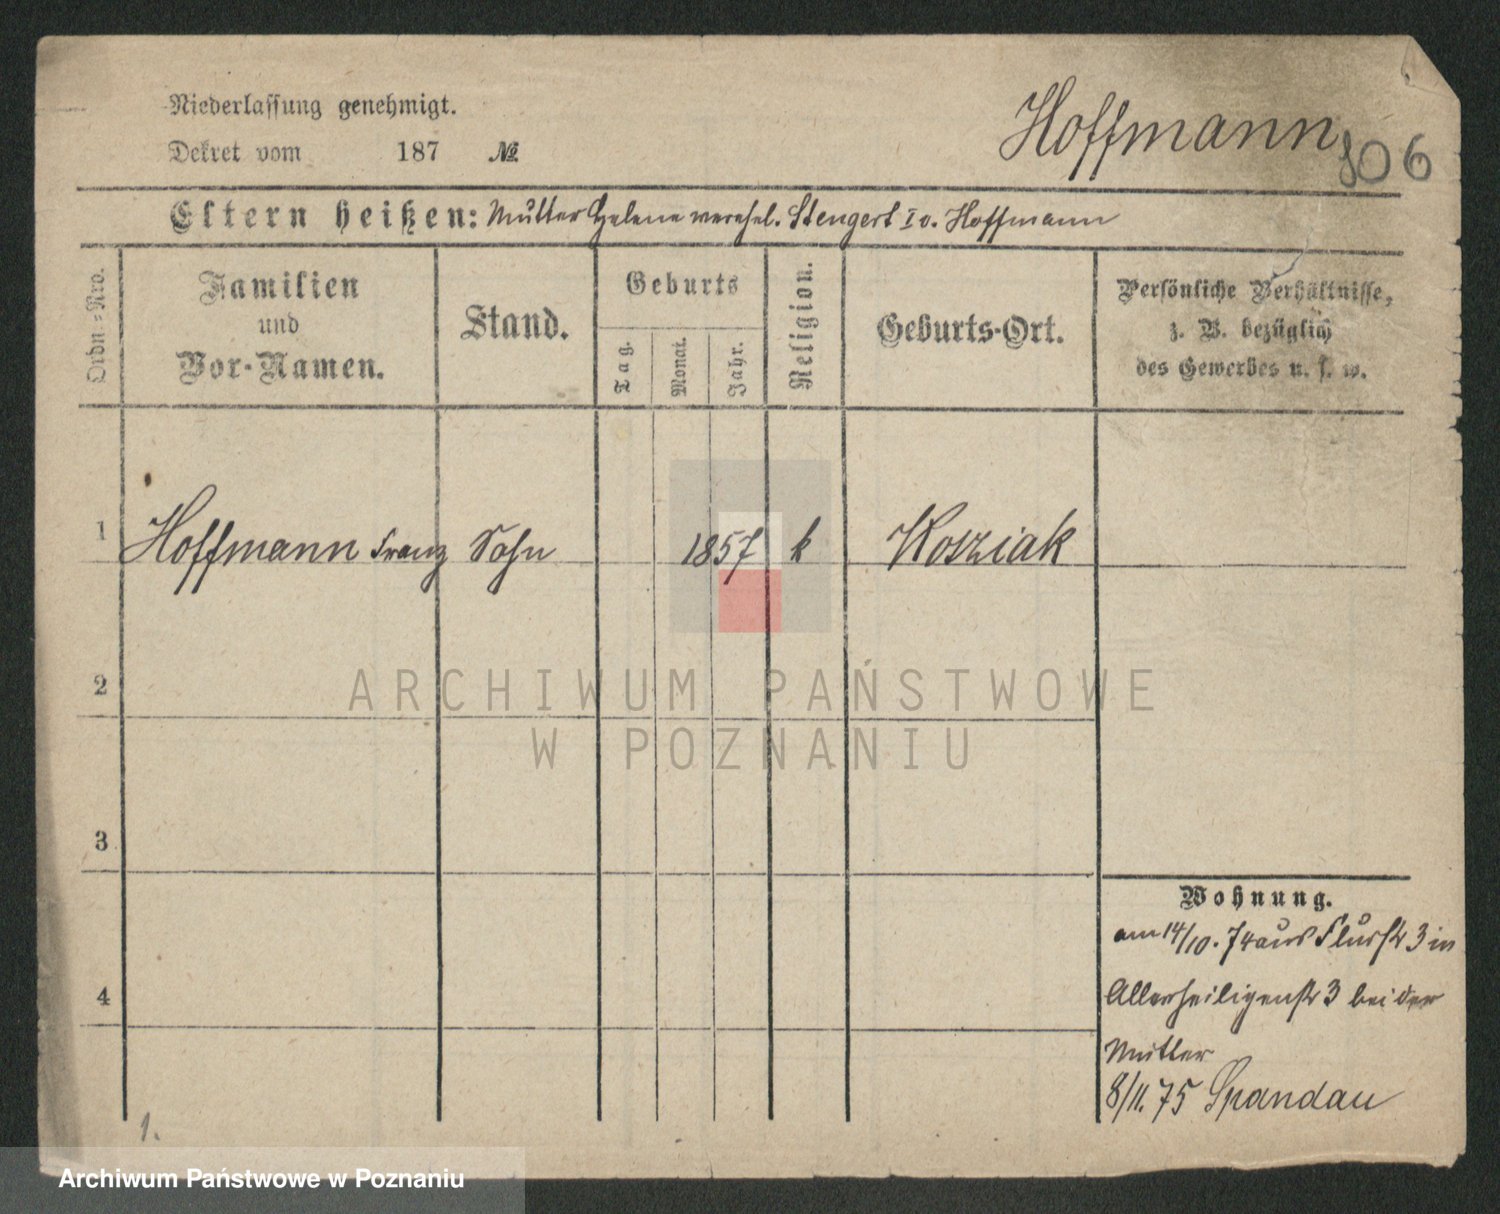 Niederlassung genehmigt.
Dekret vom 187 №
Hoffmann
106
Eltern heißen: Mutter Helene verehel. Stengert I v. Hoffmann
Ordn.-Nro.
Familien
und
Vor-Namen.
Stand.
Geburts
Tag.
Monat.
Jahr.
Religion.
Geburts-Ort.
Persönliche Verhältnisse,
z. B. bezüglich
des Gewerbes u. s. w.
1 Hoffmann Franz Sohn 1857 k Kosziak
2
ARCHIWUM PAŃSTWOWE
W POZNANIU
3
4
Wohnung.
am 14/10. 74 aus Flurstr 3 in
Allerheiligenstr 3 bei der
Mutter
8/11. 75 Spandau
1.
Archiwum Państwowe w Poznaniu